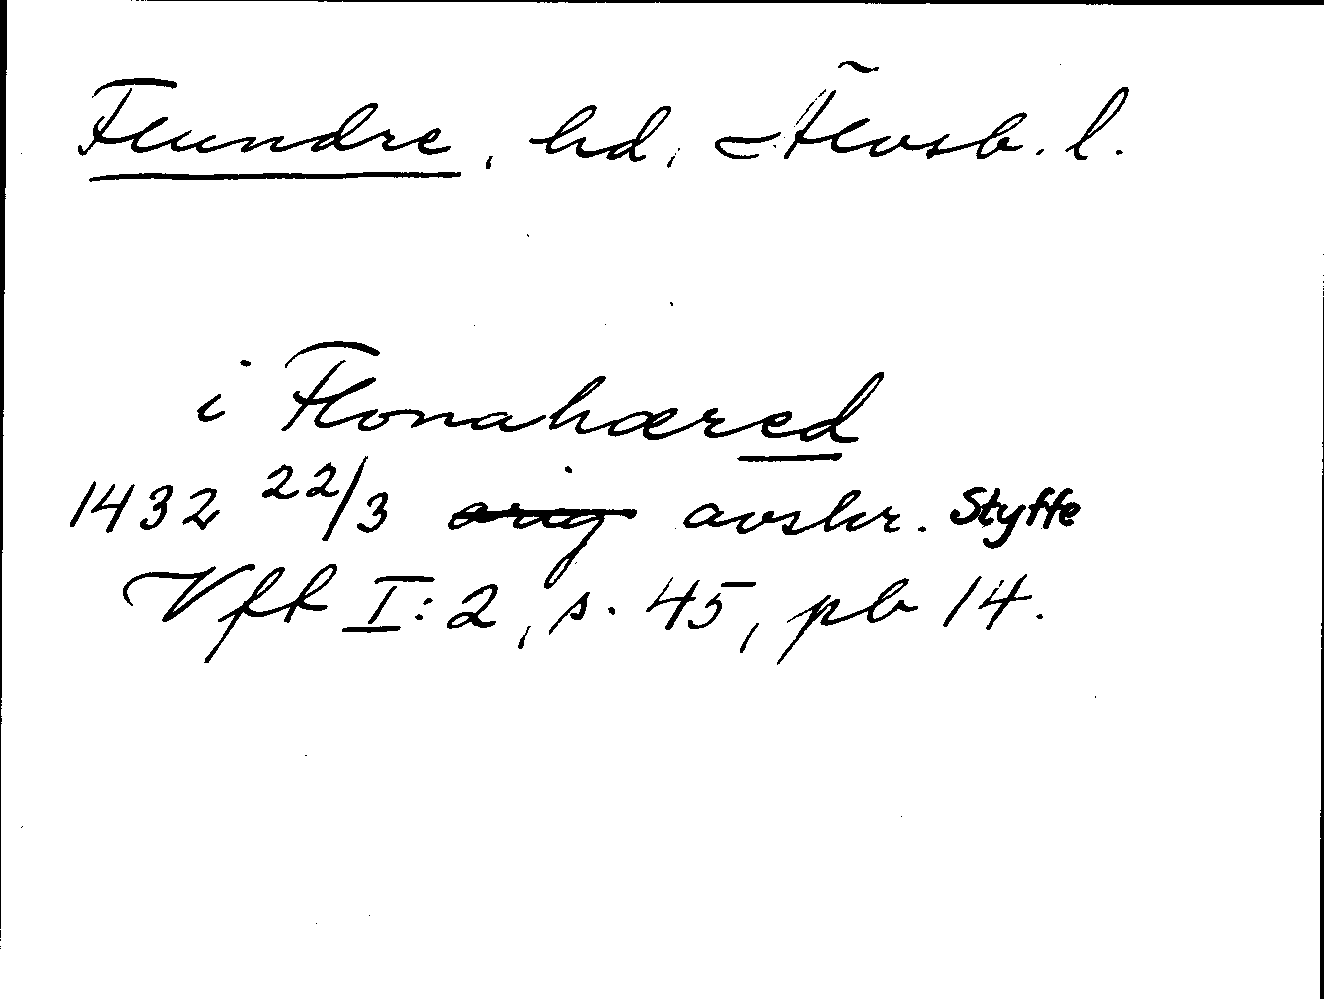 Flundre, hd, Älvsb. l.
i Flonahæred
1432 22/3 orig avskr. Styffe
Vff I:2, s. 45, pb 14.